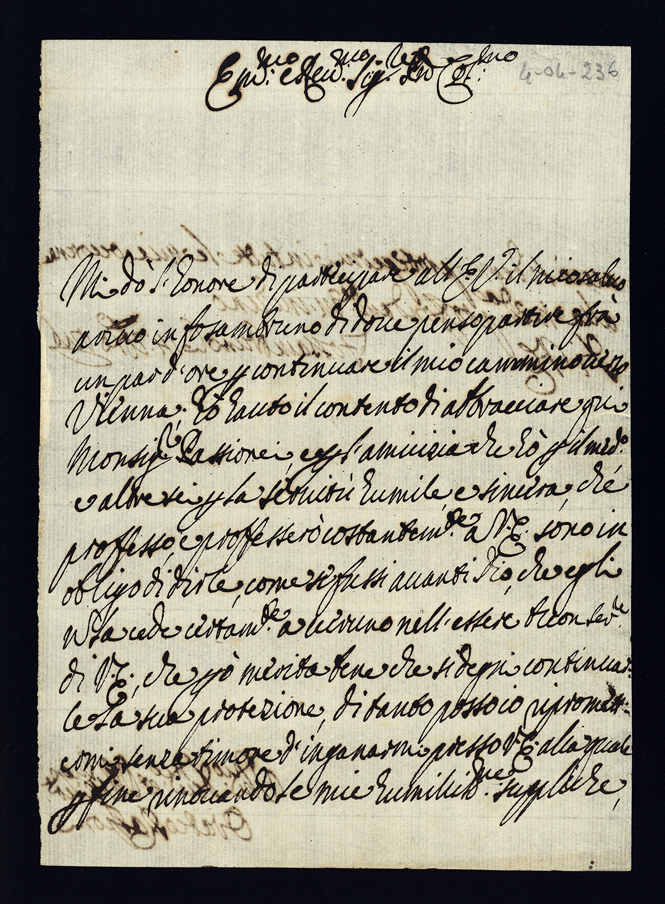 Em.mo e Rev.mo Sig.r P.rone Col.mo
4-04-236
Mi dò l'honore di partecipare all'E.V. il mio salvo
arrivo in Fosambruno di dove penso partire frà
un par d'ore p continuare il mio cammino verso
Vienna. Hò hauto il contento di abbracciare qui
Monsig.r Passionei, e p l'amicizia che hò p il med.o
e altresi p la servitù humile, e sincera, che
professo, e professerò costantem.te a V.E. sono in
obligo di dirle, come se fussi avanti Dio, che egli
n la cede certam.te a veruno nell'essere buon ser.re
di V.E., che p ciò merita bene che si degni continuar-
le la sua protezione, di tanto posso io ripromet-
termi senza timore d'inganarmi presso V.E. alla quale
p fine rinovando le mie humiliss.me suppliche,